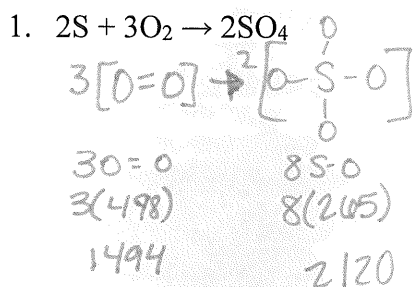 1. 2S + 3O₂ → 2SO₄
3[O=O] → 2[O-S-O]
O
O
3O=O 8S-O
3(498) 8(265)
1494 2120